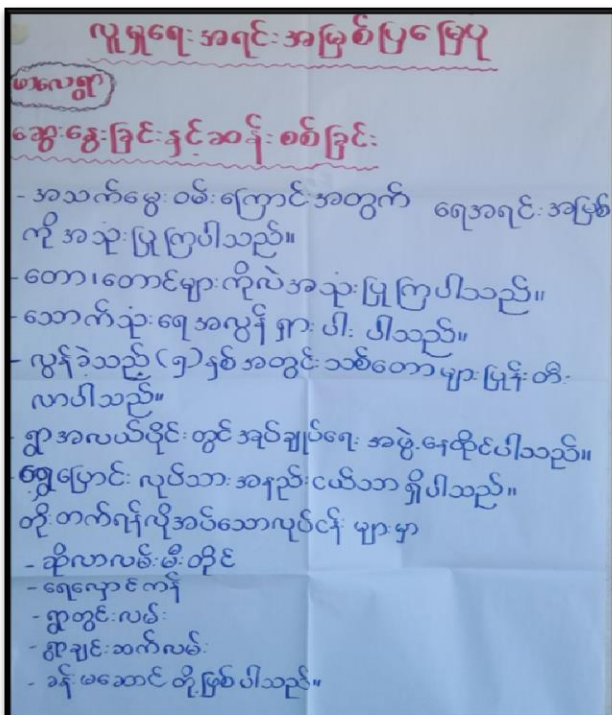 လူမှုရေးအရင်းအမြစ်ပြမြေပုံ
မာလေရွာ
ဆွေးနွေးခြင်းနှင့်ဆန်းစစ်ခြင်း
- အသက်မွေးဝမ်းကြောင်းအတွက် ရေအရင်းအမြစ်
ကို အသုံးပြုကြပါသည်။
- တော၊တောင်များကိုလဲအသုံးပြုကြပါသည်။
- သောက်သုံးရေအလွန်ရှားပါးပါသည်။
- လွန်ခဲ့သည့်(၅)နှစ်အတွင်းသစ်တောများပြုန်းတီး
လာပါသည်။
- ရွာအလယ်ပိုင်းတွင်အုပ်ချုပ်ရေးအဖွဲ့နေထိုင်ပါသည်။
- ရွှေ့ပြောင်းလုပ်သားအနည်းငယ်သာရှိပါသည်။
တိုးတက်ရန်လိုအပ်သောလုပ်ငန်းများမှာ
- ဆိုလာလမ်းမီးတိုင်
- ရေလှောင်ကန်
- ရွာတွင်းလမ်း
- ရွာချင်းဆက်လမ်း
- ခန်းမဆောင်တို့ဖြစ်ပါသည်။